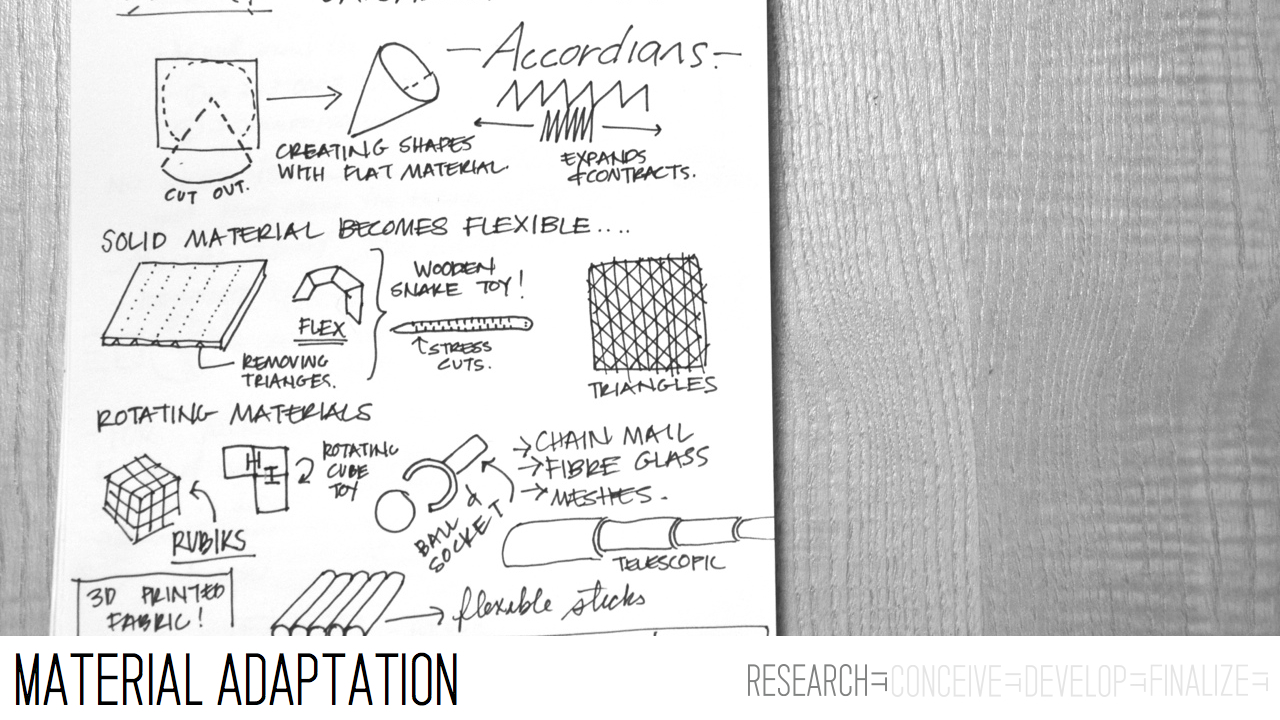 -Accordians.-
CREATING SHAPES
WITH FLAT MATERIAL.
EXPANDS
& CONTRACTS.
CUT OUT.
SOLID MATERIAL BECOMES FLEXIBLE....
FLEX
WOODEN
SNAKE TOY!
STRESS
CUTS.
REMOVING
TRIANGES.
TRIANGLES
ROTATING MATERIALS
RUBIKS
H
I
ROTATING
CUBE
TOY
BALL &
SOCKET
→CHAIN MAIL
→FIBRE GLASS
→MESHES.
TELESCOPIC
3D PRINTED
FABRIC!
flexable sticks
MATERIAL ADAPTATION
RESEARCH CONCEIVE DEVELOP FINALIZE